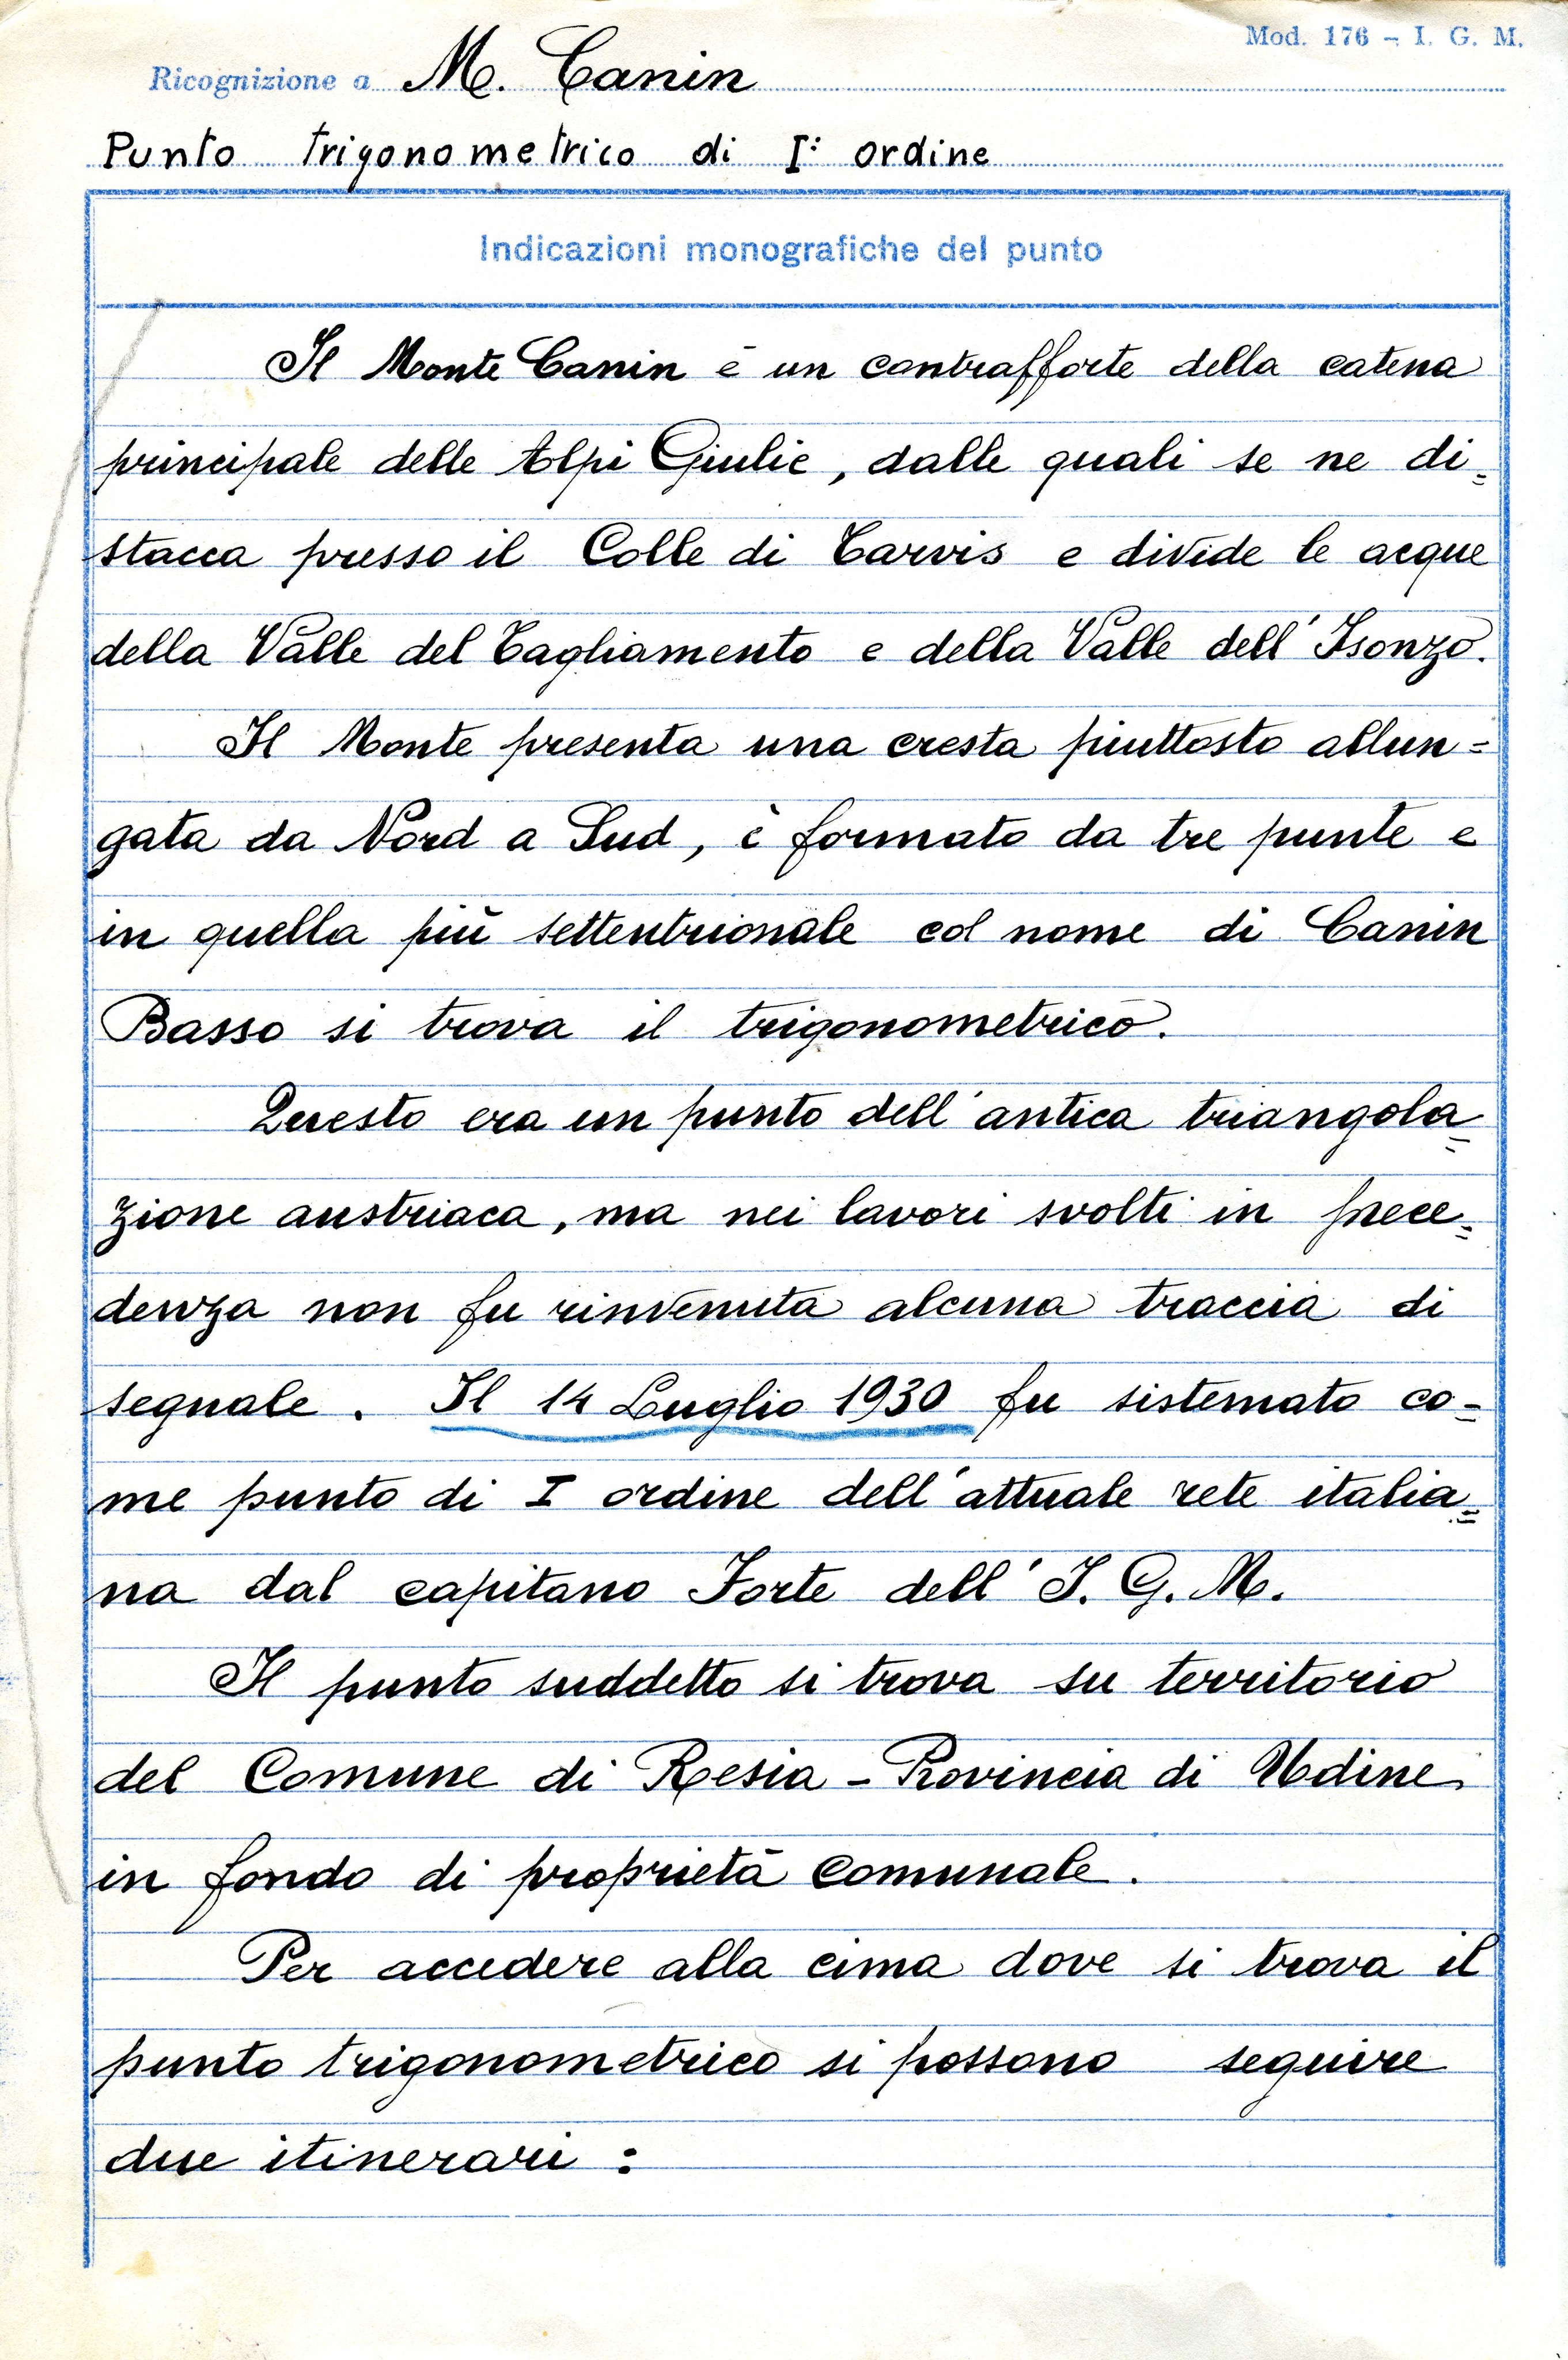 Mod. 176 - I. G. M.
Ricognizione a M. Canin
Punto trigonometrico di I° ordine
Indicazioni monografiche del punto
Il Monte Canin è un contrafforte della catena
principale delle Alpi Giulie, dalle quali se ne di=
stacca presso il Colle di Tarvis e divide le acque
della Valle del Tagliamento e della Valle dell'Isonzo.
Il Monte presenta una cresta piuttosto allun=
gata da Nord a Sud, è formato da tre punte e
in quella più settentrionale col nome di Canin
Basso si trova il trigonometrico.
Questo era un punto dell'antica triangola=
zione austriaca, ma nei lavori svolti in prece=
denza non fu rinvenuta alcuna traccia di
segnale. Il 14 Luglio 1930 fu sistemato co=
me punto di I ordine dell'attuale rete italia=
na dal capitano Forte dell'I.G.M.
Il punto suddetto si trova su territorio
del Comune di Resia - Provincia di Udine
in fondo di proprietà comunale.
Per accedere alla cima dove si trova il
punto trigonometrico si possono seguire
due itinerari :